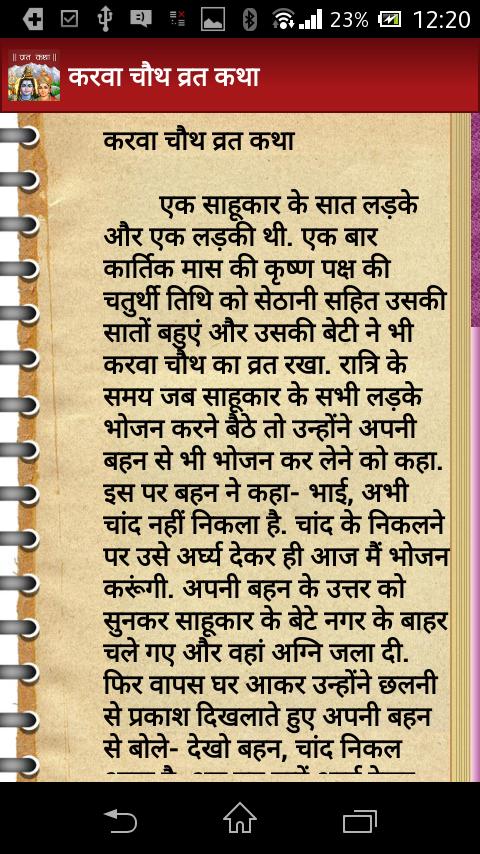 23% 12:20
|| व्रत कथा ||
करवा चौथ व्रत कथा
करवा चौथ व्रत कथा
एक साहूकार के सात लड़के
और एक लड़की थी. एक बार
कार्तिक मास की कृष्ण पक्ष की
चतुर्थी तिथि को सेठानी सहित उसकी
सातों बहुएं और उसकी बेटी ने भी
करवा चौथ का व्रत रखा. रात्रि के
समय जब साहूकार के सभी लड़के
भोजन करने बैठे तो उन्होंने अपनी
बहन से भी भोजन कर लेने को कहा.
इस पर बहन ने कहा- भाई, अभी
चांद नहीं निकला है. चांद के निकलने
पर उसे अर्घ्य देकर ही आज मैं भोजन
करूंगी. अपनी बहन के उत्तर को
सुनकर साहूकार के बेटे नगर के बाहर
चले गए और वहां अग्नि जला दी.
फिर वापस घर आकर उन्होंने छलनी
से प्रकाश दिखलाते हुए अपनी बहन
से बोले- देखो बहन, चांद निकल